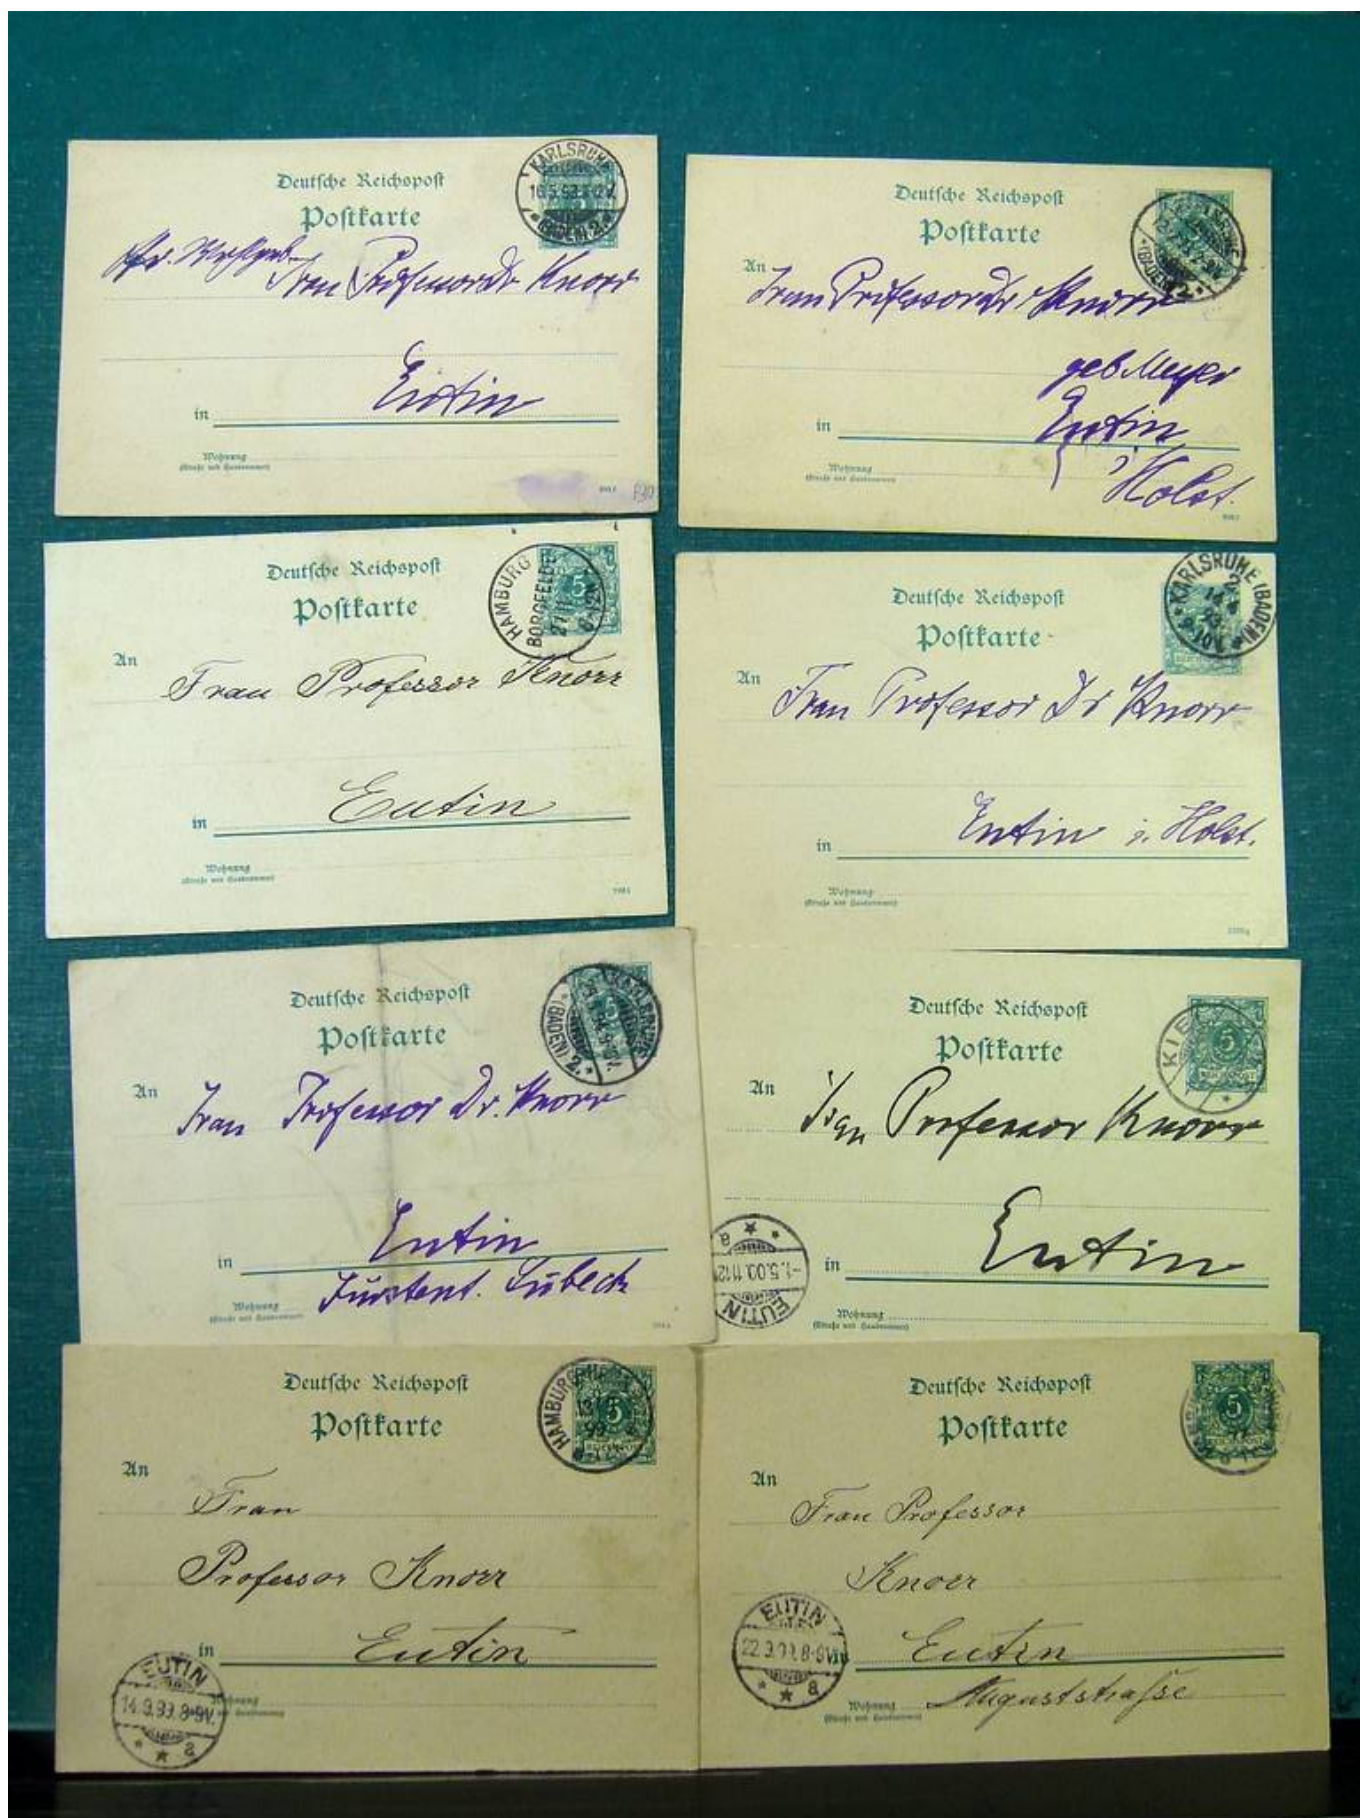 Deutsche Reichspost
Postkarte
KARLSRUHE
(BADEN) 2.
Frau Professor Dr Knorr
Eutin
in
Wohnung
(Straße und Hausnummer)
Deutsche Reichspost
Postkarte
An
(BADEN) 2.
Frau Professor Dr Knorr
geb. Meyer
in Eutin
Holst.
Wohnung
(Straße und Hausnummer)
Deutsche Reichspost
Postkarte
HAMBURG
BORGFELDE
5
An
Frau Professor Knorr
in Eutin
Wohnung
(Straße und Hausnummer)
Deutsche Reichspost
Postkarte
KARLSRUHE (BADEN)
2
An
Frau Professor Dr Knorr
in Eutin i. Holst.
Wohnung
(Straße und Hausnummer)
Deutsche Reichspost
Postkarte
KARLSRUHE
(BADEN) 2.
An
Frau Professor Dr. Knorr
in Eutin
Fürstent. Lübeck
Wohnung
(Straße und Hausnummer)
Deutsche Reichspost
Postkarte
KIEL
5
REICHSPOST
An
Frau Professor Knorr
in Eutin
EUTIN
-1.5.00.11-12
a
Wohnung
(Straße und Hausnummer)
Deutsche Reichspost
Postkarte
HAMBURG
13
99
5
REICHSPOST
An
Frau
Professor Knorr
in Eutin
EUTIN
14.9.99.8-9V.
a
Wohnung
(Straße und Hausnummer)
Deutsche Reichspost
Postkarte
5
An
Frau Professor
Knorr
in Eutin
EUTIN
a
Wohnung
Auguststraße
(Straße und Hausnummer)